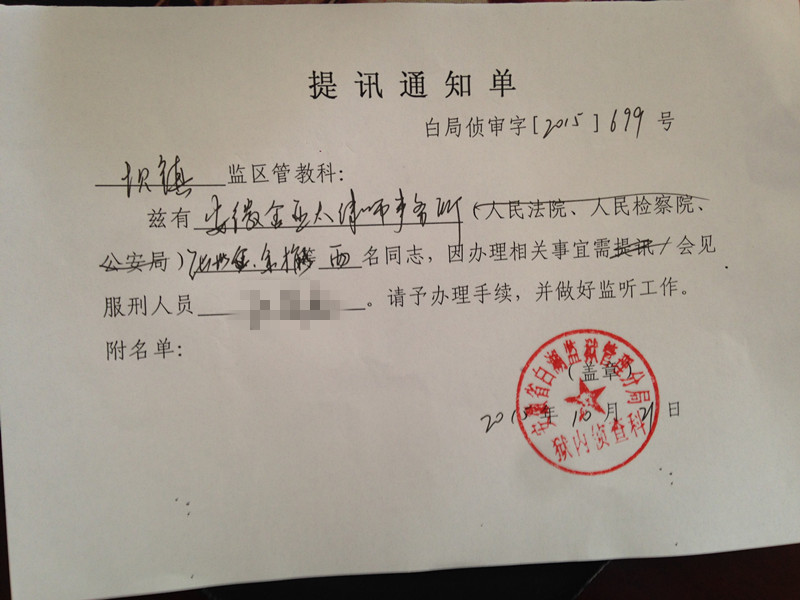 提讯通知单
白局侦审字[2015]699号
坝镇 监区管教科：
兹有 安徽金亚太律师事务所 (人民法院、人民检察院、
公安局) 两 名同志，因办理相关事宜需提讯/会见
服刑人员 。请予办理手续，并做好监听工作。
附名单：
(盖章)
2015年10月21日
安徽省白湖监狱管理分局
狱内侦查科